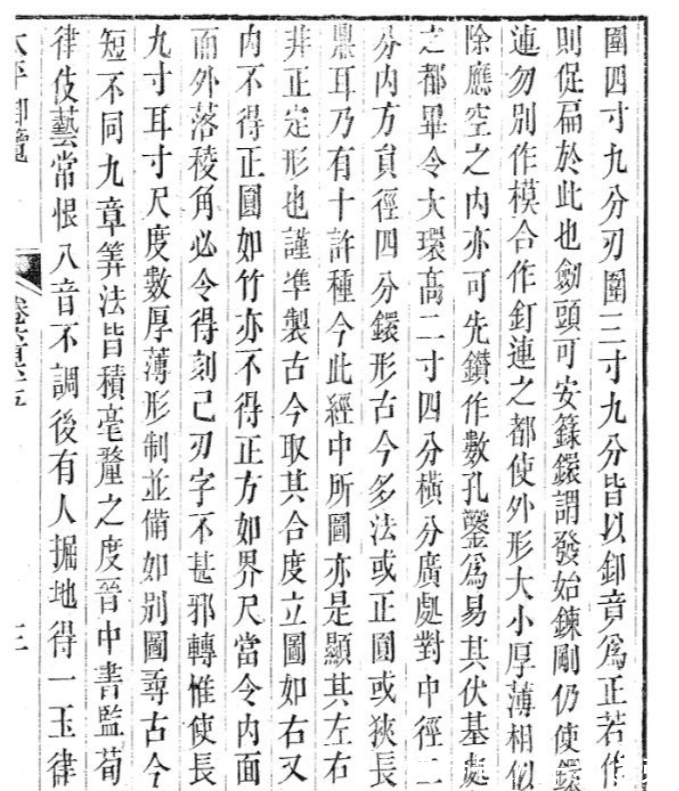 圍四寸九分刃圍三寸九分皆以卸賁爲正若作
則促匾於此也劒頭可安籙鐶謂發始鍊剛仍使鐶
連勿別作模合作釘連之都使外形大小厚薄相似
除應空之内亦可先鑚作數孔鑿爲易其伏基處
之都畢令大環高二寸四分橫分廣處對中徑二
分内方員徑四分鐶形古今多法或正圓或狹長
鼎耳乃有十許種今此經中所圖亦是顯其左右
并正定形也謹準製古今取其合度立圖如右又
内不得正圓如竹亦不得正方如界尺當令内面
面外落稜角必令得刻己刃字不甚邪轉惟使長
九寸耳寸尺度數厚薄形制並備如別圖尋古今
短不同九章筭法皆積毫釐之度晉中書監荀
律伎藝常恨八音不調後有人掘地得一玉律
太平御覽 卷六百六十五 三